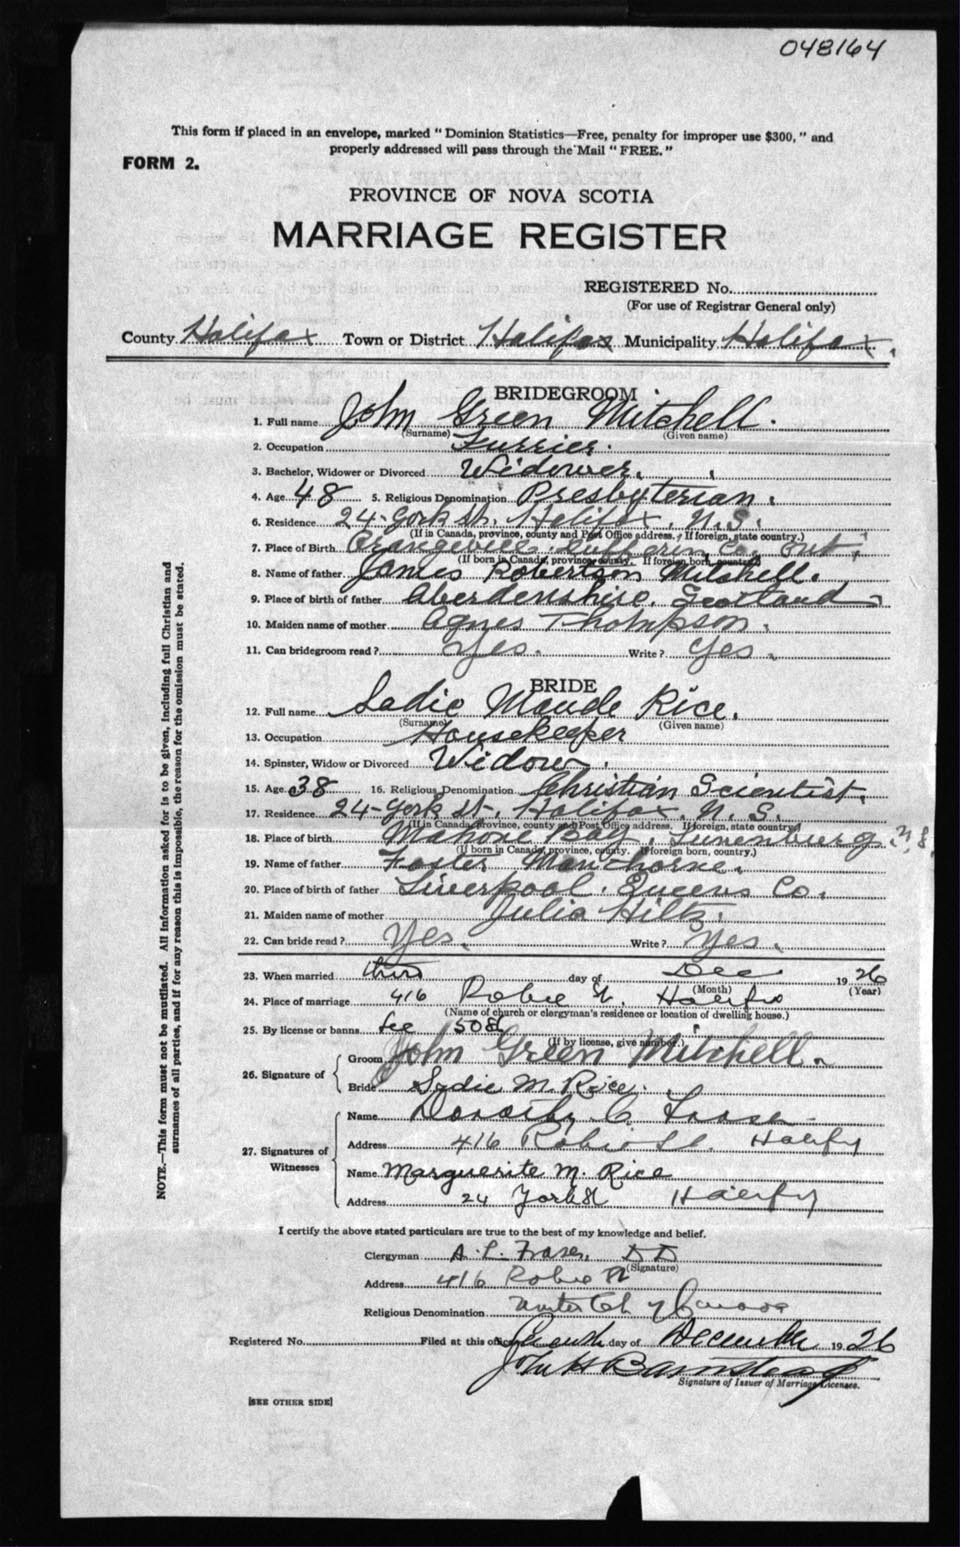 048164
This form if placed in an envelope, marked " Dominion Statistics—Free, penalty for improper use $300, " and
properly addressed will pass through the Mail " FREE. "
FORM 2.
PROVINCE OF NOVA SCOTIA
MARRIAGE REGISTER
REGISTERED No.
(For use of Registrar General only)
County Halifax Town or District Halifax Municipality Halifax.
BRIDEGROOM
1. Full name John Green Mitchell.
(Surname) (Given name)
2. Occupation Furrier.
3. Bachelor, Widower or Divorced Widower.
4. Age 48 5. Religious Denomination Presbyterian.
6. Residence 24 York St. Halifax, N.S.
(If in Canada, province, county and Post Office address. If foreign, state country.)
7. Place of Birth Orangeville Dufferin Co. Ont.
(If born in Canada, province, county. If foreign born, country.)
8. Name of father James Robertson Mitchell.
9. Place of birth of father Aberdenshire, Scotland
10. Maiden name of mother Agnes Thompson.
11. Can bridegroom read? Yes. Write? Yes.
BRIDE
12. Full name Sadie Maude Rice.
(Surname) (Given name)
13. Occupation Housekeeper
14. Spinster, Widow or Divorced Widow.
15. Age 38 16. Religious Denomination Christian Scientist.
17. Residence 24 York St. Halifax, N.S.
(If in Canada, province, county and Post Office address. If foreign, state country)
18. Place of birth Mahone Bay, Lunenburg N.S.
(If born in Canada, province, county. If foreign born, country.)
19. Name of father Foster Manthorne.
20. Place of birth of father Liverpool, Queens Co.
21. Maiden name of mother Julia Hiltz.
22. Can bride read? Yes. Write? Yes.
23. When married third day of Dec 1926
(Month) (Year)
24. Place of marriage 416 Robie St. Halifax
(Name of church or clergyman's residence or location of dwelling house.)
25. By license or banns
(If by license, give number.)
26. Signature of Groom John Green Mitchell.
Bride Sadie M. Rice.
27. Signatures of Witnesses Name Dorothy C. Fraser
Address 416 Robie St. Halifax
Name Marguerite M. Rice
Address 24 York St Halifax
I certify the above stated particulars are true to the best of my knowledge and belief.
Clergyman A. L. Fraser, DD
(Signature)
Address 416 Robie St
Religious Denomination United Ch of Canada
Registered No. Filed at this office day of December 1926
John H Barnstead
Signature of Issuer of Marriage Licenses.
[SEE OTHER SIDE]
NOTE.—This form must not be mutilated. All information asked for is to be given, including full Christian and
surnames of all parties, and if for any reason this is impossible, the reason for the omission must be stated.